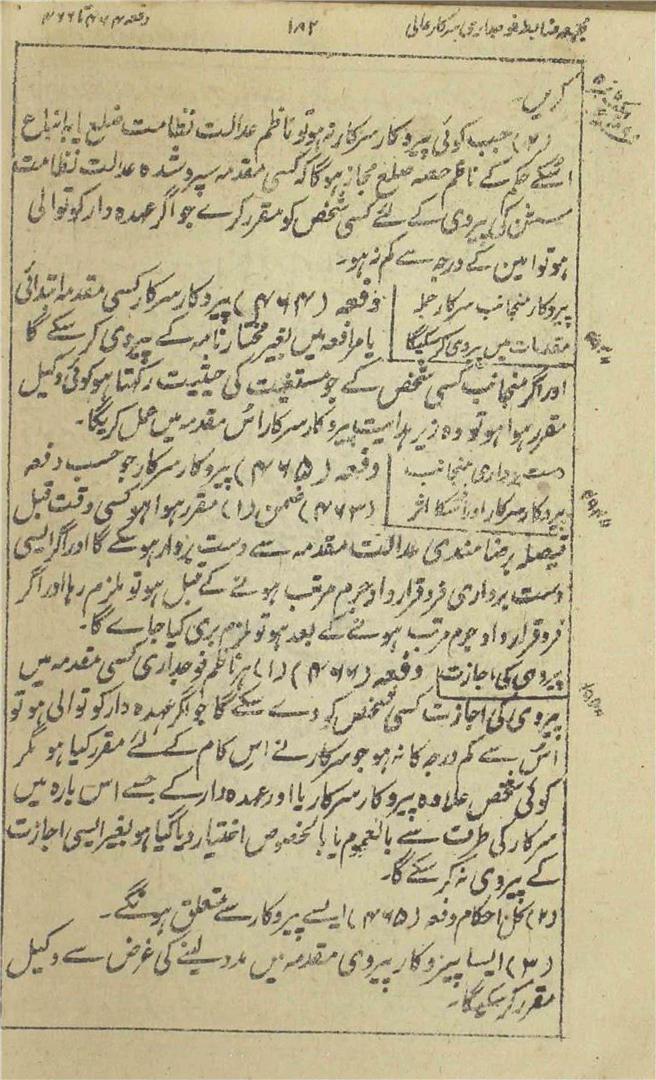 مجموعہ ضابطہ فوجداری سرکار عالی
۱۸۲
دفعہ ۴۶۴ تا ۴۶۶
کریں۔
(۲) جب کوئی پیروکار سرکار نہ ہو تو ناظم عدالت نظامت ضلع یا بہ اتباع
اُسکے حکم کے ناظم حصہ ضلع مجاز ہوگا کہ کسی مقدمہ سپرد شدہ عدالت نظامت
سشن کی پیروی کے لئے کسی شخص کو مقرر کرے جو اگر عہدہ دار کوتوالی
ہو تو امین کے درجہ سے کم نہ ہو۔
پیروکار منجانب سرکار جملہ
مقدمات میں پیروی کرسکیگا
دفعہ (۴۶۴) پیروکار سرکار کسی مقدمہ ابتدائی
یا مرافعہ میں بغیر مختار نامہ کے پیروی کرسکے گا
اور اگر منجانب کسی شخص کے جو مستغیث کی حیثیت رکھتا ہو کوئی وکیل
مقرر ہوا ہو تو وہ زیر ہدایت پیروکار سرکار اُس مقدمہ میں عمل کریگا۔
دست برداری منجانب
پیروکار سرکار اور اُسکا اثر
دفعہ (۴۶۵) پیروکار سرکار جو حسب دفعہ
(۴۶۳) ضمن (۱) مقرر ہوا ہو کسی وقت قبل
فیصلہ برضامندی عدالت مقدمہ سے دست بردار ہوسکے گا اور اگر ایسی
دست برداری فرد قرارداد جرم مرتب ہونے کے قبل ہو تو ملزم رہا اور اگر
فرد قرارداد جرم مرتب ہونے کے بعد ہو تو ملزم بری کیا جاے گا۔
پیروی کی اجازت
دفعہ (۴۶۶) (۱) ہر ناظم فوجداری کسی مقدمہ میں
پیروی کی اجازت کسی شخص کو دے سکے گا جو اگر عہدہ دار کوتوالی ہو تو
اُس سے کم درجہ کا نہ ہو جو سرکار نے اس کام کے لئے مقرر کیا ہو مگر
کوئی شخص علاوہ پیروکار سرکار یا اور عہدہ دار کے جسے اس بارہ میں
سرکار کی طرف سے بالعموم یا بالخصوص اختیار دیا گیا ہو بغیر ایسی اجازت
کے پیروی نہ کرسکے گا۔
(۲) کل احکام دفعہ (۴۶۵) ایسے پیروکار سے متعلق ہونگے۔
(۳) ایسا پیروکار پیروی مقدمہ میں مدد لینے کی غرض سے وکیل
مقرر کرسکے گا۔